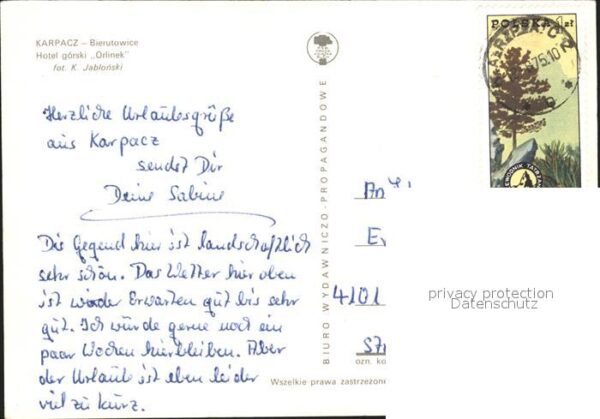 KARPACZ – Bierutowice
Hotel górski „Orlinek"
fot. K. Jabłoński
Herzliche Urlaubsgrüße
aus Karpacz
sendet Dir
Deine Sabine
Die Gegend hier ist landschaftlich
sehr schön. Das Wetter hier oben
ist wider Erwarten gut bis sehr
gut. Ich würde gerne noch ein
paar Wochen hierbleiben. Aber
der Urlaub ist eben leider
viel zu kurz.
BIURO WYDAWNICZO-PROPAGANDOWE
POLSKA 1 zł
4101
privacy protection
Datenschutz
Wszelkie prawa zastrzeżone
ozn. ko